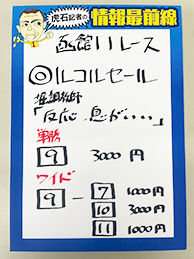 虎石記者の
情報最前線
函館11レース
◎ルコルセール
「反応、息がいい」
単勝
9 3000円
ワイド
9 - 7 1000円
10 3000円
11 1000円